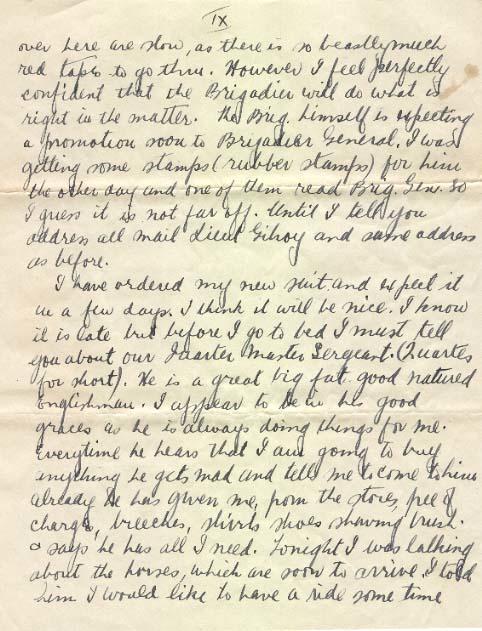 IX
over here are slow, as there is so beastly much
red tape to go thru. However I feel perfectly
confident that the Brigadier will do what is
right in the matter. The Brig. himself is expecting
a promotion soon to Brigadier General. I was
getting some stamps (rubber stamps) for him
the other day and one of them read Brig. Gen. so
I guess it is not far off. Until I tell you
address all mail Lieut Gilroy and same address
as before.
I have ordered my new suit and expect it
in a few days. I think it will be nice. I know
it is late but before I go to bed I must tell
you about our Quarter Master Sergeant. (Quartes
for short). He is a great big fat good natured
Englishman. I appear to be in his good
graces as he is always doing things for me.
Everytime he hears that I am going to buy
anything he gets mad and tells me to come to him
already he has given me, from the stores, free of
charge, breeches, shirts shoes shaving brush.
says he has all I need. Tonight I was talking
about the horses, which are soon to arrive. I told
him I would like to have a ride some time